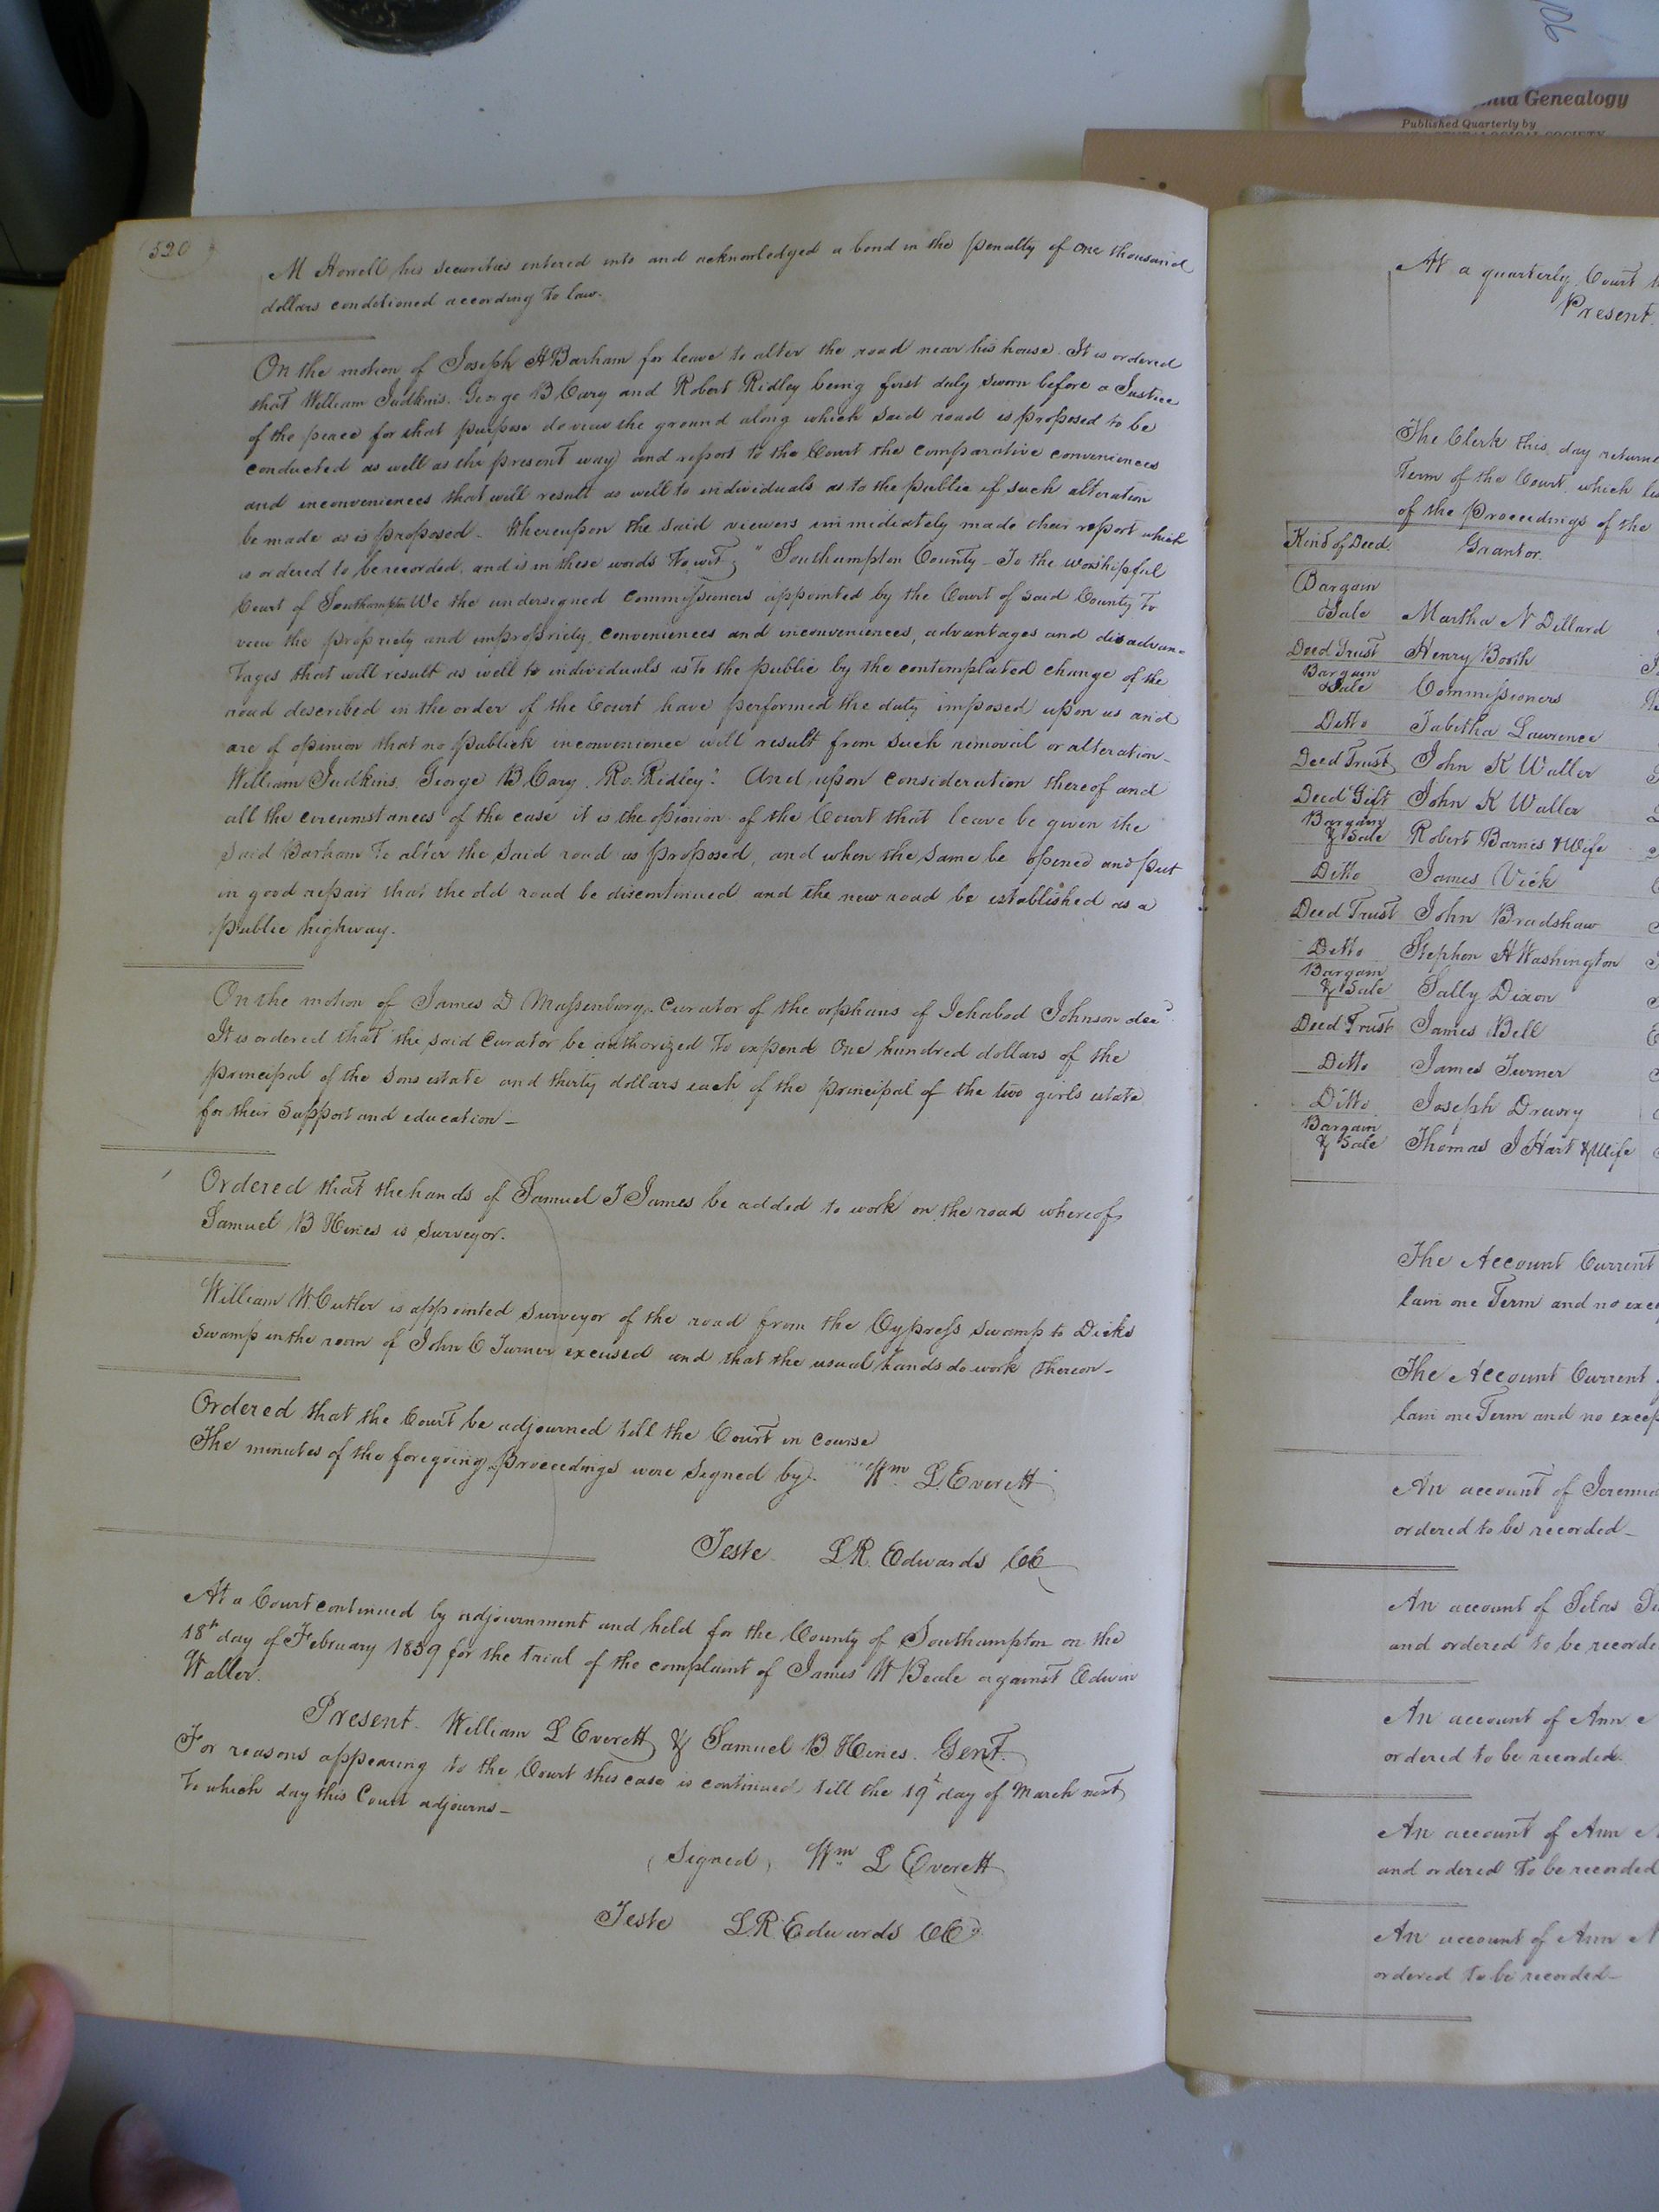 520
M Howell his securities entered into and acknowledged a bond in the penalty of One thousand
dollars conditioned according to law.
On the motion of Joseph H Barham for leave to alter the road near his house. It is ordered
that William Judkins, George B Cary and Robert Ridley being first duly sworn before a Justice
of the peace for that purpose do view the ground along which said road is proposed to be
conducted as well as the present way and report to the Court the comparative conveniences
and inconveniences that will result as well to individuals as to the public if such alteration
be made as is proposed. Whereupon the said viewers immidiately made their report which
is ordered to be recorded, and is in these words to wit; "Southampton County - To the worshipful
Court of Southampton We the undersigned Commissioners appointed by the Court of said County to
view the propriety and impropriety, conveniences and inconveniences, advantages and disadvan=
tages that will result as well to individuals as to the public by the contemplated change of the
road described in the order of the Court have performed the duty imposed upon us and
are of opinion that no publick inconvenience will result from such removal or alteration-
William Judkins, George B Cary, Ro. Ridley." And upon consideration thereof and
all the circumstances of the case it is the opinion of the Court that leave be given the
said Barham to alter the said road as proposed, and when the same be opened and put
in good repair that the old road be discontinued and the new road be established as a
public highway.
On the motion of James D Massenburg, Curator of the orphans of Ichabod Johnson decd
It is ordered that the said Curator be authorized to expend One hundred dollars of the
principal of the sons estate and thirty dollars each of the principal of the two girls estate
for their support and education-
Ordered that the hands of Samuel T James be added to work on the road whereof
Samuel B Hines is surveyor.
William W. Cutler is appointed surveyor of the road from the Cypress swamp to Dicks
swamp in the room of John C Turner excused and that the usual hands do work thereon-
Ordered that the Court be adjourned till the Court in course
The minutes of the foregoing proceedings were signed by. Wm L. Everett
Teste L.R. Edwards CC
At a Court continued by adjournment and held for the County of Southampton on the
18th day of February 1839 for the trial of the complaint of James W Beale against Edwin
Waller.
Present. William L Everett & Samuel B Hines. Gent.
For reasons appearing to the Court this case is continued till the 19th day of March next
to which day this Court adjourns-
(Signed) Wm L Everett
Teste L.R. Edwards CC
Genealogy
Published Quarterly by
At a quarterly Court
Present.
The Clerk this day
Term of the Court, which
of the Proceedings of the
Kind of Deed. Grantor.
Bargain
Sale Martha N Dillard
Deed Trust Henry Booth
Bargain
Sale Commissioners
Ditto Tabitha Lawrence
Deed Trust John K Waller
Deed Gift John K Waller
Bargain
& Sale Robert Barnes & Wife
Ditto James Vick
Deed Trust John Bradshaw
Ditto Stephen H Washington
Bargain
& Sale Sally Dixon
Deed Trust James Bell
Ditto James Turner
Ditto Joseph Drewry
Bargain
& Sale Thomas J Hart & Wife
The Account Current
lain one Term and no
The Account Current
lain one Term and no
An account of
ordered to be recorded-
An account of Silas
and ordered to be
An account of Ann
ordered to be recorded.
An account of Ann
and ordered to be recorded
An account of Ann
ordered to be recorded-